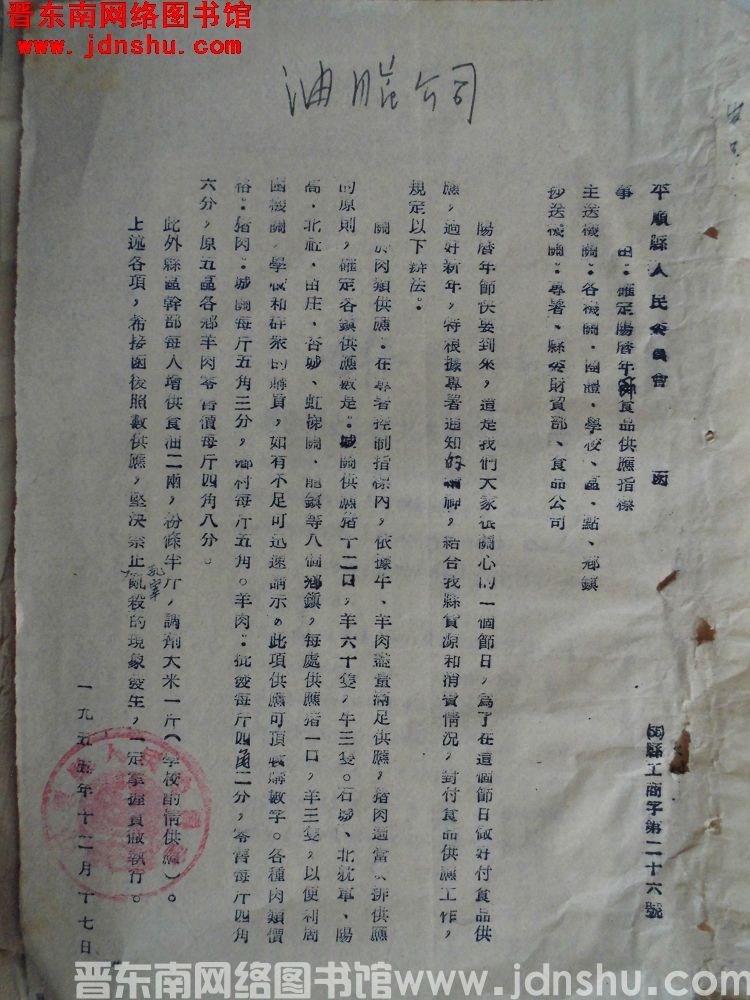 晋东南网络图书馆
www.jdnshu.com
油脂公司
平順縣人民委員會 函
(55)縣工商字第二十六號
事 由:確定陽曆年節食品供應指標
主送機關:各機關、團體、學校、區、點、鄉鎮
抄送機關:專署、縣委財貿部、食品公司
陽曆年節快要到來,這是我們大家很關心的一個節日,爲了在這個節日做好付食品供
應,過好新年,特根據專署通知的精神,結合我縣貨源和消費情况,對付食品供應工作,
規定以下辦法:
關於肉類供應:在專署控制指標內,依據牛、羊肉盡量滿足供應,猪肉適當安排供應
的原則,確定各鎮供應數是:城關供應猪十二口,羊六十隻,牛三隻。石城、北耽車、陽
高、北社、苗庄、杏城、虹梯關、龍鎮等八個鄉鎮,每處供應猪一口,羊三隻,以便利周
圍機關、學校和群衆的購買,如有不足可迅速請示。此項供應可頂收購數字。各種肉類價
格:猪肉:城關每斤五角三分,鄉村每斤五角。羊肉:批發每斤四角二分,零售每斤四角
六分,原五區各鄉羊肉零售價每斤四角八分。
此外縣區幹部每人增供食油二兩,粉條半斤,調劑大米一斤(學校酌情供應)。
上述各項,希接函後照數供應,堅决禁止亂殺的現象發生,一定掌握貫徹執行。
乱宰
一九五五年十二月十七日
晋东南网络图书馆www.jdnshu.com